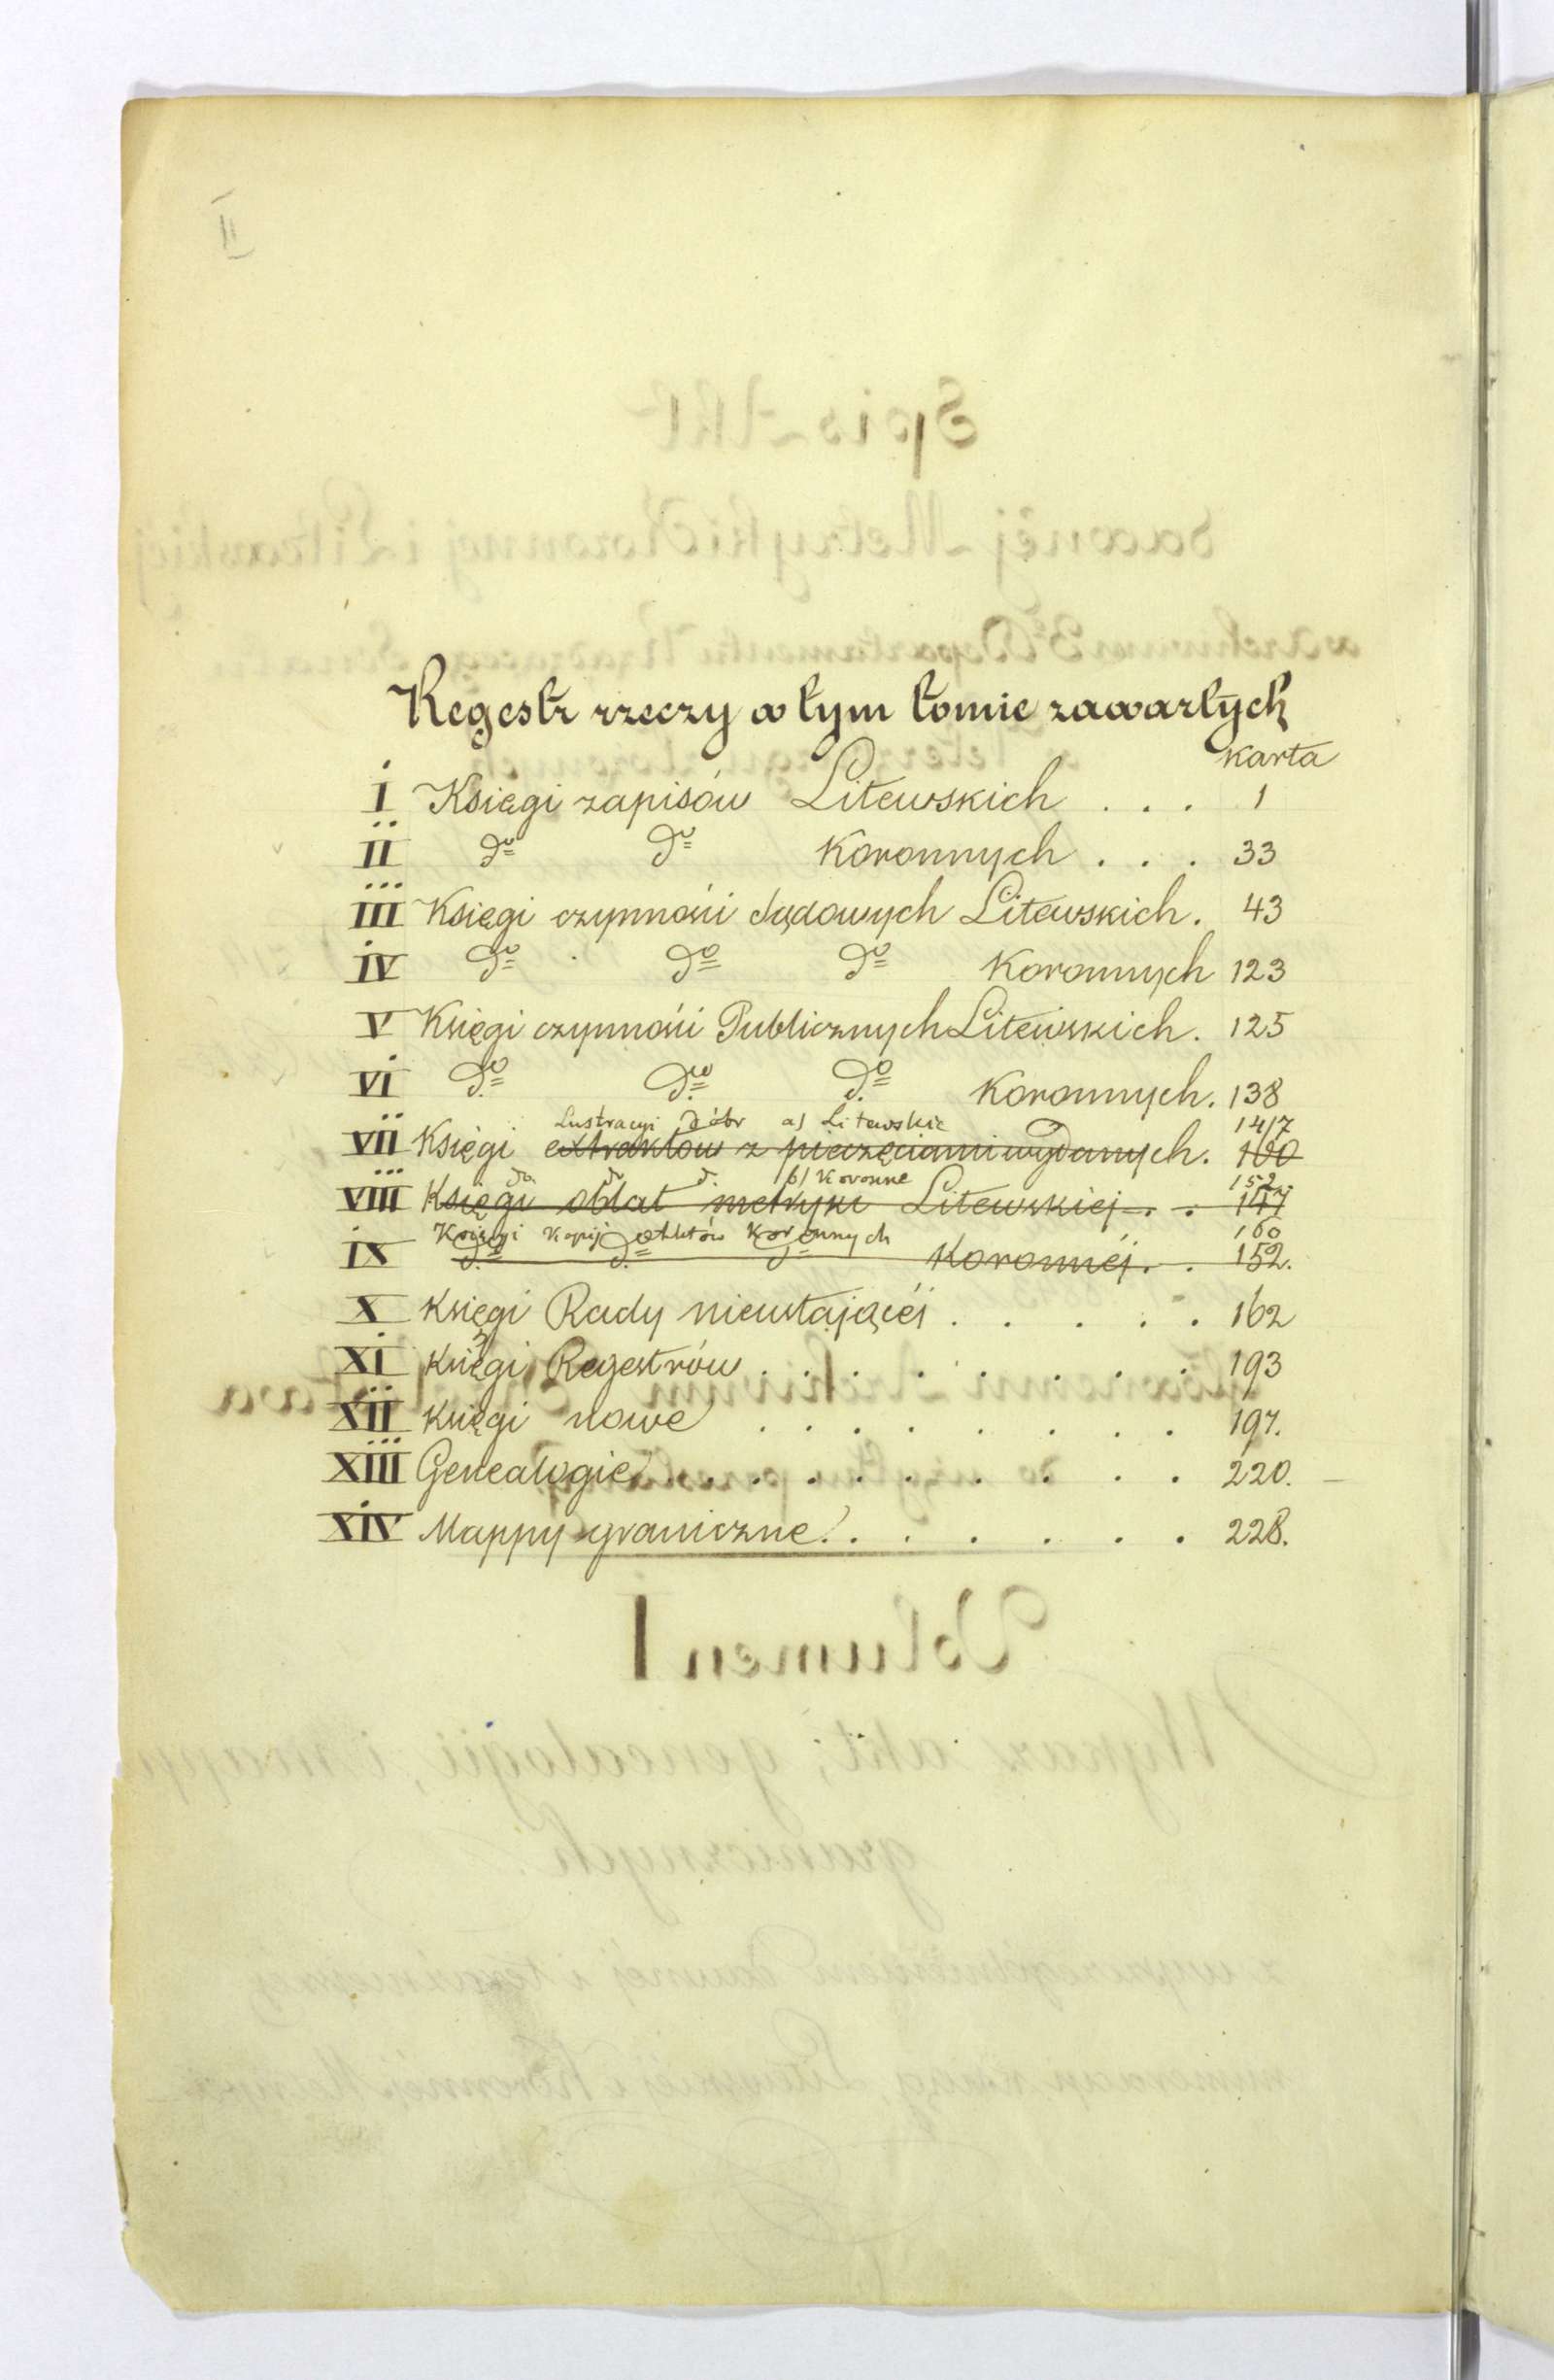 II
Regestr rzeczy w tym tomie zawartych
karta
I Księgi zapisów Litewskich . . . 1
II do do Koronnych . . . 33
III Księgi czynności sądowych Litewskich. 43
IV do do do Koronnych 123
V Księgi czynności Publicznych Litewskich. 125
VI do do do Koronnych. 138
Lustracyi Dóbr a) Litewskie 147
VII Księgi extraktow z pieczęciami wydanych. 160
do d. d. b) Koronne 152.
VIII Księgi oblat metryki Litewskiej . . 147
Księgi Kopij Koronnych 160
IX do do do Koronnéj . . 152.
X Księgi Rady nieustającéj . . . . . 162
XI Księgi Regestrów . . . . . . . . 193
XII Księgi nowe . . . . . . . . 197.
XIII Genealogie . . . . . . . . . 220.
XIV Mappy graniczne . . . . . . . 228.